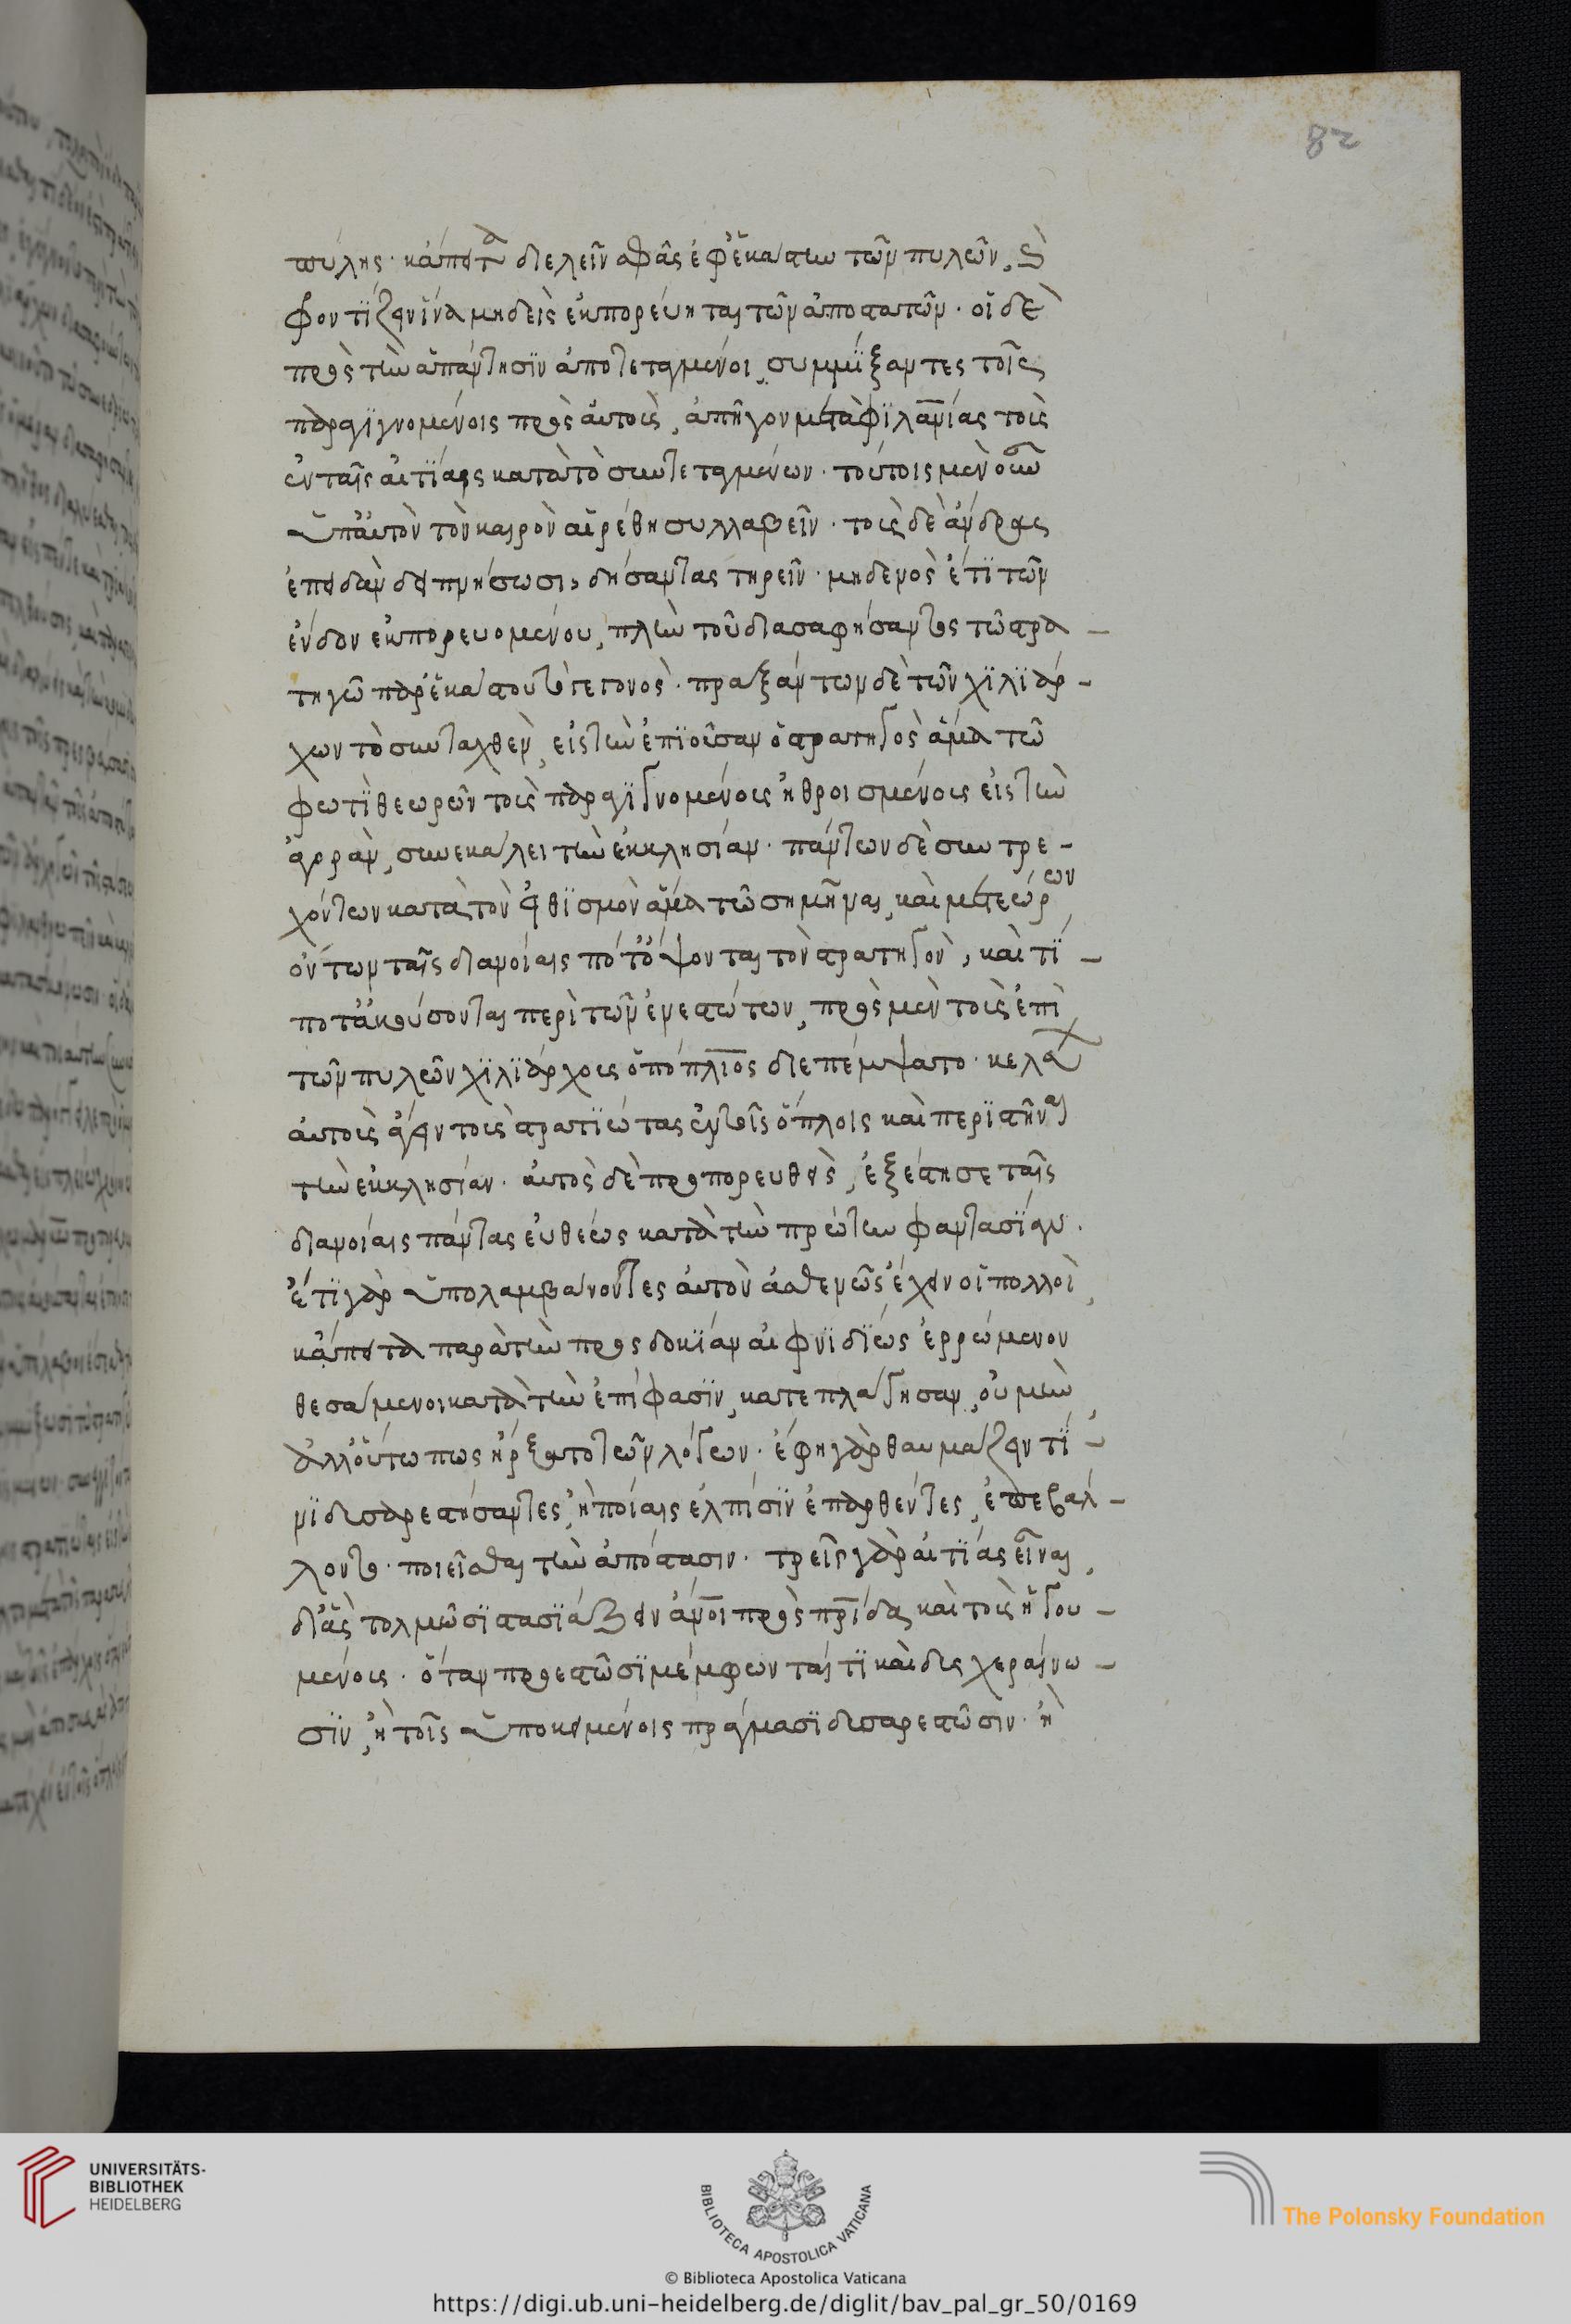 82
πύλης· κἄπειτα διελεῖν σφᾶς ἐφ' ἑκάστην τῶν πυλῶν, καὶ
φροντίζειν ἵνα μηδεὶς ἐκπορεύηται τῶν ἀποστατῶν· οἱ δὲ
πρὸς τὴν ἀπάντησιν ἀποτεταγμένοι, συμμίξαντες τοῖς
παραγιγνομένοις πρὸς αὐτοὺς, ἀπῆγον μετὰ φιλανίας τοὺς
ἐν ταῖς αἰτίαις κατὰ τὸ συντεταγμένων· τούτοις μὲν οὖν
ὑπ' αὐτὸν τὸν καιρὸν αἱρέθη συλλαβεῖν· τοὺς δὲ ἄνδρας
ἐπειδὰν δειπνήσωσι, δήσαντας τηρεῖν· μηδενὸς ἔτι τῶν
ἔνδον ἐκπορευομένου, πλὴν τοῦ διασαφήσαντος τῷ στρα-
τηγῷ παρ' ἑκάστου τὸ γεγονὸς· πραξάντων δὲ τῶν χιλιάρ-
χων τὸ συνταχθὲν, εἰς τὴν ἐπιοῦσαν ὁ στρατηγὸς ἅμα τῷ
φωτὶ θεωρῶν τοὺς παραγιγνομένους ἠθροισμένους εἰς τὴν
ἀγορὰν, συνεκάλει τὴν ἐκκλησίαν· πάντων δὲ συντρε-
χόντων κατὰ τὸν ἐθισμὸν ἅμα τῷ σημῆναι, καὶ μετεώρων
ὄντων ταῖς διανοίαις πότ' ὄψονται τὸν στρατηγὸν, καὶ τί-
ποτ' ἀκούσονται περὶ τῶν ἐνεστώτων, πρὸς μὲν τοὺς ἐπὶ
τῶν πυλῶν χιλιάρχους ὁ πόπλιος διεπέμψατο· κελ
αὐτοὺς ἄγειν τοὺς στρατιώτας ἐν τοῖς ὅπλοις καὶ περιστῆναι
τὴν ἐκκλησίαν· αὐτὸς δὲ προπορευθεὶς, ἐξέστησε ταῖς
διανοίαις πάντας εὐθέως κατὰ τὴν πρώτην φαντασίαν·
ἔτι γὰρ ὑπολαμβάνοντες αὐτὸν ἀσθενῶς ἔχειν οἱ πολλοὶ,
κἄπειτα παρὰ τὴν προσδοκίαν αἰφνιδίως ἐρρώμενον
θεσάμενοι κατὰ τὴν ἐπίφασιν, κατεπλάγησαν, οὐ μὴν
ἀλλ' οὕτω πως ἤρξατο τῶν λόγων· ἔφη γὰρ θαυμάζειν τί-
νι δυσαρεστήσαντες, ἢ ποίαις ἐλπίσιν ἐπαρθέντες, ἐπεβάλ-
λοντο· ποιεῖσθαι τὴν ἀπόστασιν· τρεῖς γὰρ αἰτίας εἶναι,
δι' ἃς τολμῶσι στασιάζειν ἄνοι πρὸς πρίδα, καὶ τοὺς ἡγου-
μένους· ὅταν προεστῶσι μέμφωνταί τι καὶ δυσχεραίνω-
σιν, ἢ τοῖς ὑποκειμένοις πράγμασι δυσαρεστῶσιν· ἢ
UNIVERSITÄTS-
BIBLIOTHEK
HEIDELBERG
BIBLIOTECA APOSTOLICA VATICANA
The Polonsky Foundation
© Biblioteca Apostolica Vaticana
https://digi.ub.uni-heidelberg.de/diglit/bav_pal_gr_50/0169